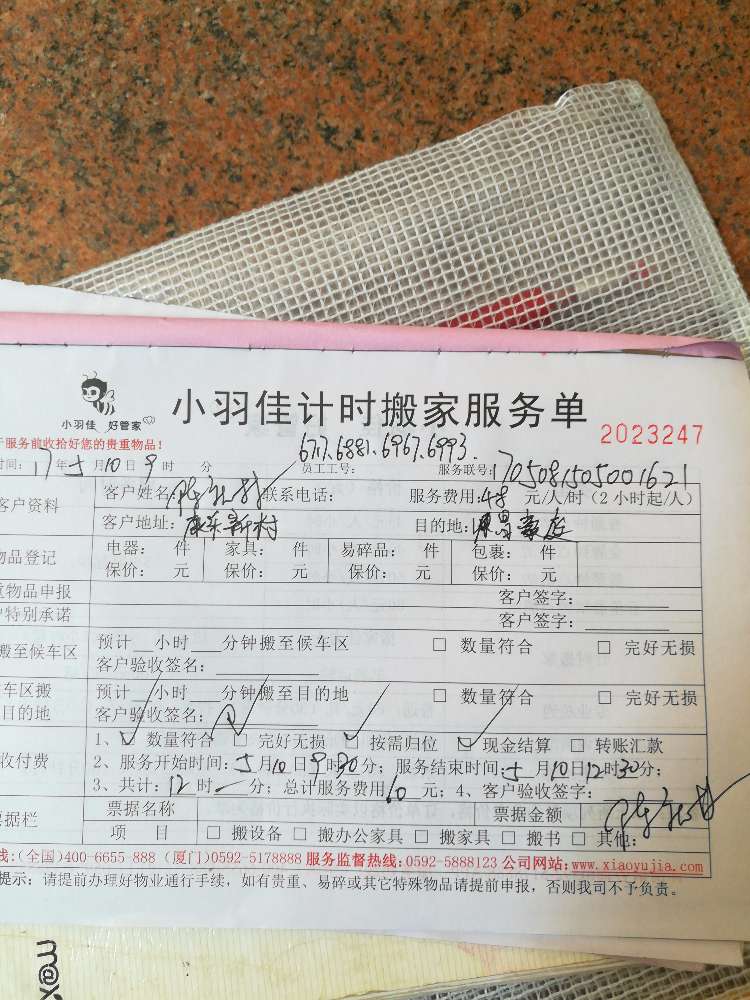 小羽佳 好管家
小羽佳计时搬家服务单
2023247
服务前收拾好您的贵重物品！
6717.6881.6967.6993.
时间：17年5月10日9时 分 员工工号： 服务联号：1705081505001621
客户资料
客户姓名： 联系电话： 服务费用：48元/人/时（2小时起/人）
客户地址：康乐新村 目的地：
物品登记
电器： 件 家具： 件 易碎品： 件 包裹： 件
保价： 元 保价： 元 保价： 元 保价： 元
重物品申报 客户签字：
户特别承诺 客户签字：
搬至候车区
预计__小时___分钟搬至候车区 □ 数量符合 □ 完好无损
客户验收签名：
车区搬
目的地
预计__小时___分钟搬至目的地 □ 数量符合 □ 完好无损
客户验收签名：
收付费
1、☑ 数量符合 ☑ 完好无损 ☑ 按需归位 ☑ 现金结算 □ 转账汇款
2、服务开始时间：5月10日9时30分；服务结束时间：5月10日12时30分；
3、共计：12时一分；总计服务费用：元；4、客户验收签字：
票据栏
票据名称 票据金额
项 目 □ 搬设备 □ 搬办公家具 □ 搬家具 □ 搬书 □ 其他：
线：(全国)400-6655 888 (厦门)0592-5178888 服务监督热线：0592-5888123 公司网站：www.xiaoyujia.com
提示：请提前办理好物业通行手续，如有贵重、易碎或其它特殊物品请提前申报，否则我司不予负责。
m@x